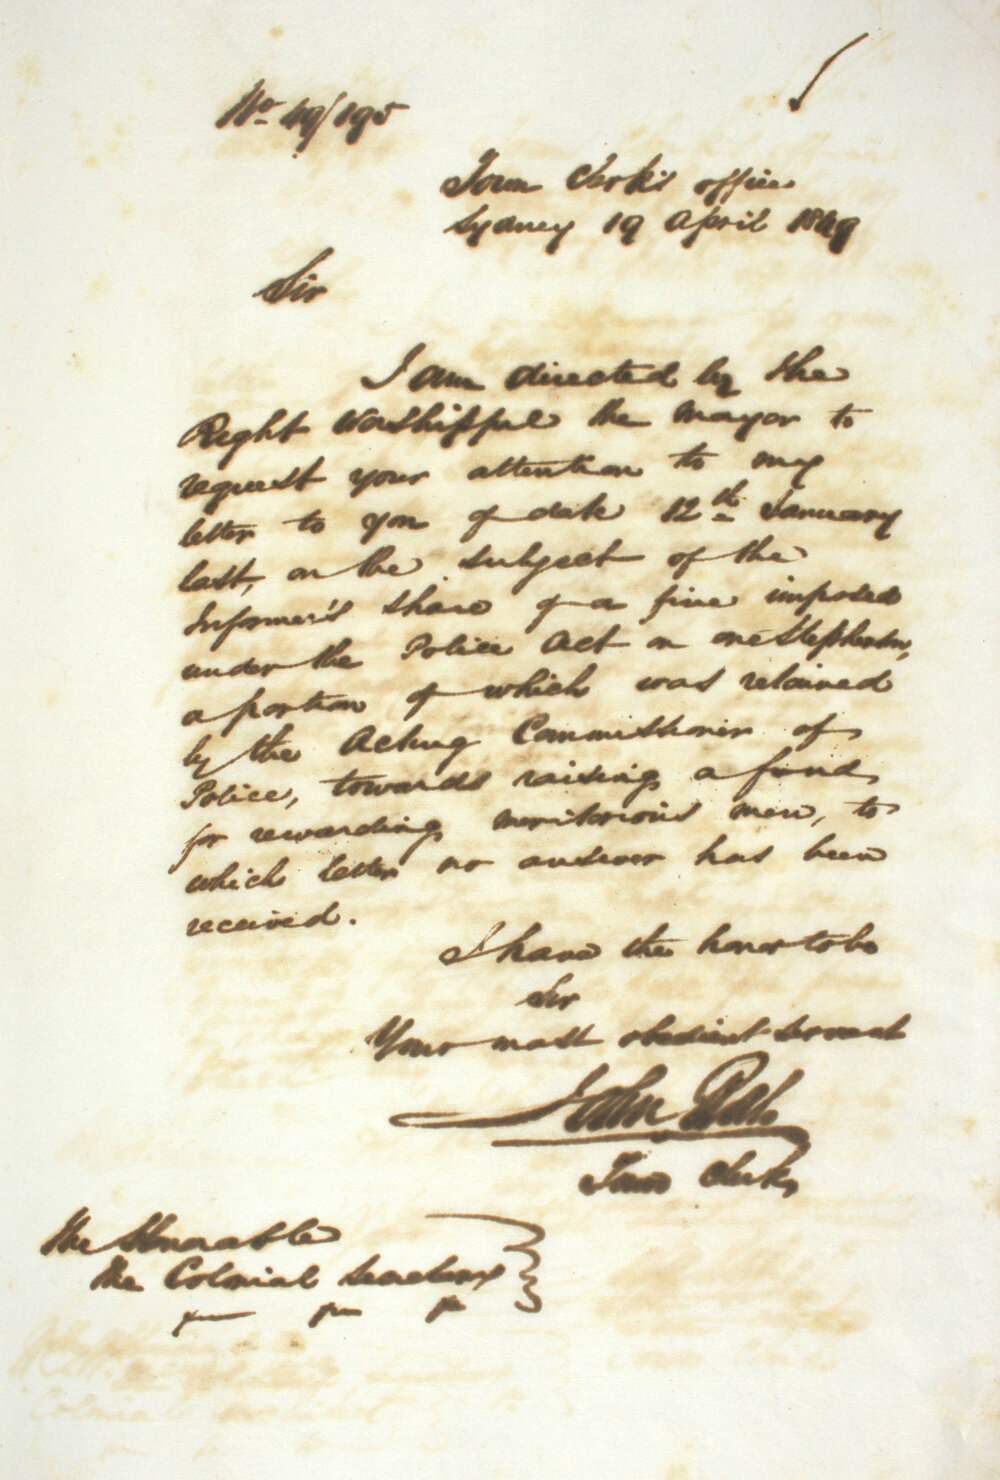 No 49/195
Town Clerk's office
Sydney 19 April 1849
Sir
I am directed by the
Right Worshipful the Mayor to
request your attention to my
letter to you of date 12th January
last, on the subject of the
Informer's share of a fine imposed
under the Police Act on one Stephenson,
a portion of which was retained
by the Acting Commissioner of
Police, towards raising a fund,
for rewarding meritorious men, to
which letter no answer has been
received.
I have the honor to be
Sir
Your most obedient servant
John Rae
Town Clerk
The Honorable
The Colonial Secretary